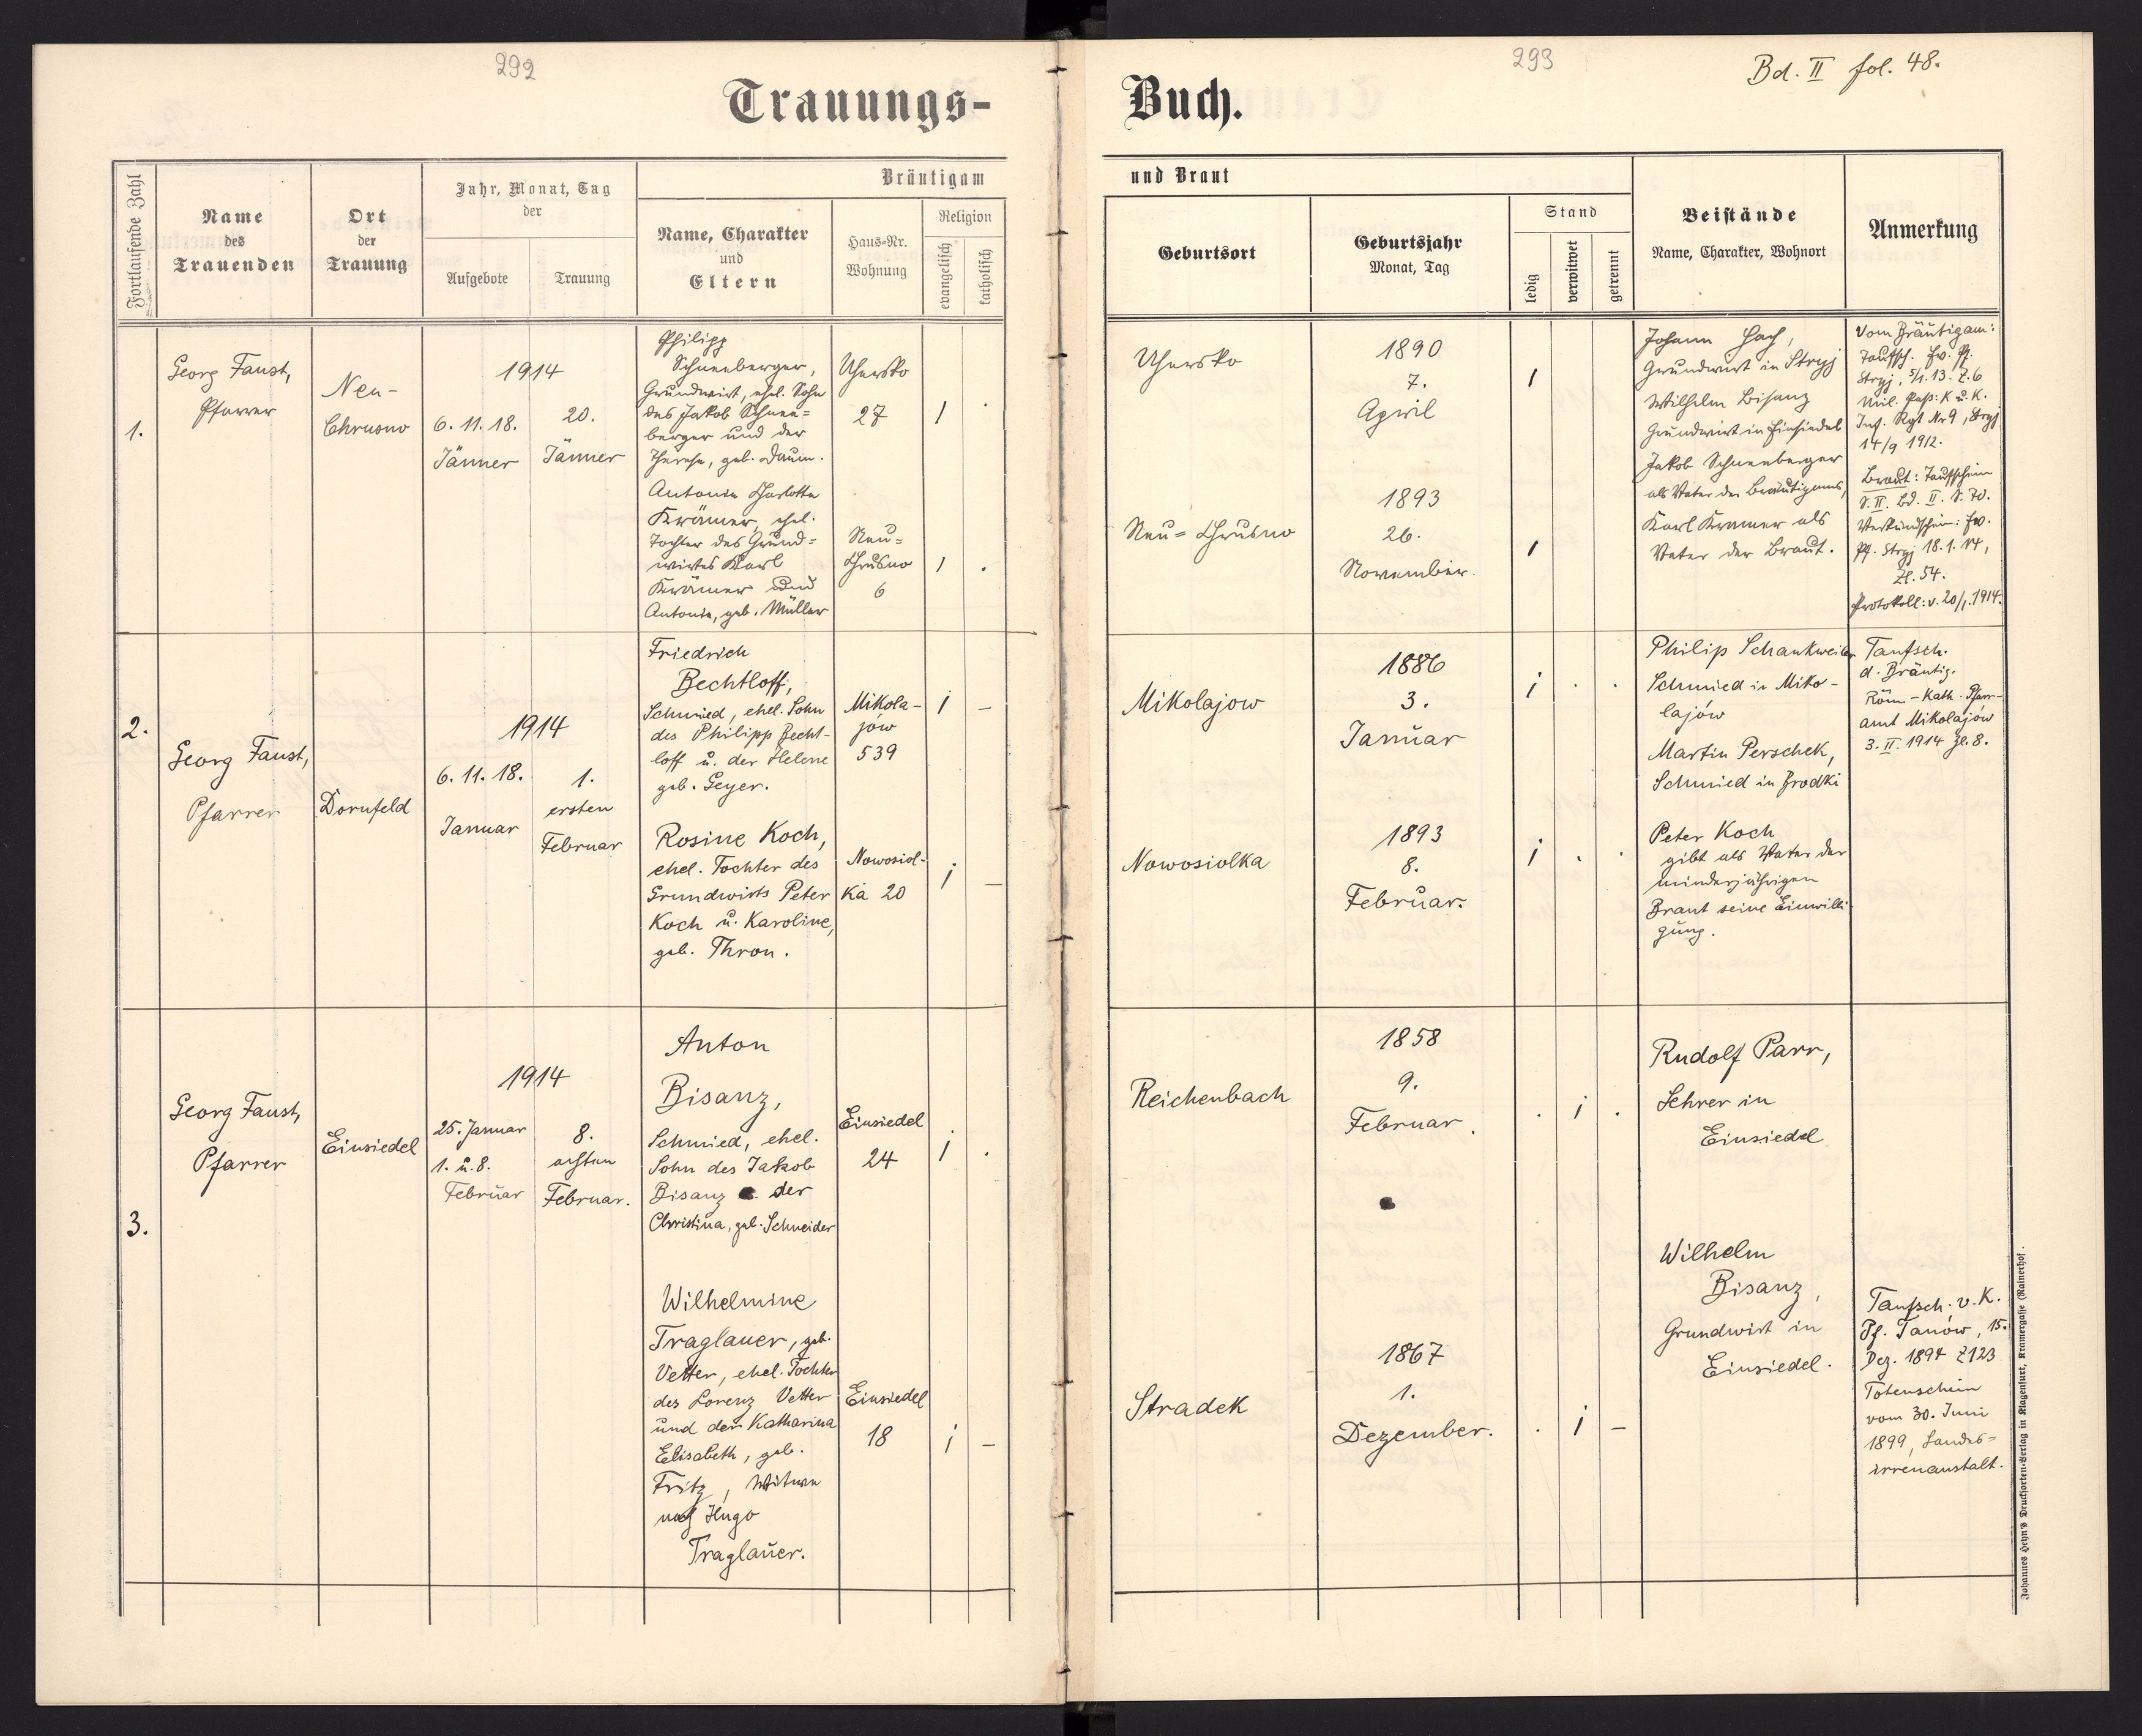 292
293
Bd. II fol. 48.
Trauungs-
Buch.
Fortlaufende Zahl
Name
des
Trauenden
Ort
der
Trauung
Jahr, Monat, Tag
der
Aufgebote
Trauung
Bräutigam
und Braut
Name, Charakter
und
Eltern
Haus-Nr.
Wohnung
Religion
evangelisch
katholisch
Geburtsort
Geburtsjahr
Monat, Tag
Stand
ledig
verwitwet
getrennt
Beistände
Name, Charakter, Wohnort
Anmerkung
1.
Georg Faust,
Pfarrer
Neu-
Chrusno
1914
6. 11. 18.
Jänner
20.
Jänner
Philipp
Schneeberger,
Grundwirt, ehel. Sohn
des Jakob Schnee=
berger und der
Therese, geb. Daum.
Uhersko
27
1
Antonie Charlotte
Krämer, ehel.
Tochter des Grund=
wirtes Karl
Krämer und
Antonie, geb. Müller
Neu=
Chrusno
6
1
.
Uhersko
1890
7.
April
1
Neu=Chrusno
1893
26.
November.
1
Johann Hach,
Grundwirt in Stryj
Wilhelm Bisanz
Grundwirt in Einsiedel
Jakob Schneeberger
als Vater des Bräutigams,
Karl Kramer als
Vater der Braut.
Vom Bräutigam:
Taufsch. Ev. Pf.
Stryj, 5/1. 13. Z. 6
Mil. Paß: K. u. K.
Inf. Rgt Nr 9, Stryj
14/9 1912.
Braut: Taufschein
S. II. Bd. II. S. 70.
Verkündschein: Ev.
Pf. Stryj 18. 1. 14,
Zl. 54.
Protokoll: v. 20/1. 1914.
2.
Georg Faust,
Pfarrer
Dornfeld
1914
6. 11. 18.
Januar
1.
ersten
Februar
Friedrich
Bechtloff,
Schmied, ehel. Sohn
des Philipp Becht-
loff u. der Helene
geb. Geyer.
Mikola-
jów
539
1
-
Rosine Koch,
ehel. Tochter des
Grundwirts Peter
Koch u. Karoline,
geb. Thron.
Nowosiol-
ka 20
1
-
Mikolajow
1886
3.
Januar
1 . .
Nowosiolka
1893
8.
Februar.
1 . .
Philip Schankweiler
Schmied in Miko-
lajów
Martin Perschek,
Schmied in Brodki
Peter Koch
gibt als Vater der
minderjährigen
Braut seine Einwilli
gung.
Taufsch.
d. Bräutig.
Röm-Kath. Pfarr-
amt Mikolajów
3. II. 1914 Zl. 8.
3.
Georg Faust,
Pfarrer
Einsiedel
1914
25. Januar
1. u. 8.
Februar
8.
achten
Februar.
Anton
Bisanz,
Schmied, ehel.
Sohn des Jakob
Bisanz u. der
Christina, geb. Schneider
Einsiedel
24
1
.
Wilhelmine
Traglauer, geb.
Vetter, ehel. Tochter
des Lorenz Vetter
und der Katharina
Elisabeth, geb.
Fritz, Witwe
nach Hugo
Traglauer.
Einsiedel
18
1
-
Reichenbach
1858
9.
Februar.
. 1 .
Stradek
1867
1.
Dezember.
. 1 -
Rudolf Parr,
Lehrer in
Einsiedel
Wilhelm
Bisanz,
Grundwirt in
Einsiedel.
Taufsch. v. K.
Pf. Janów, 15.
Dez. 1894 Z 123
Totenschein
vom 30. Juni
1899, Landes=
irrenanstalt.
Johannes Heyn's Drucksorten-Verlag in Klagenfurt, Kramergasse (Rainerhof).